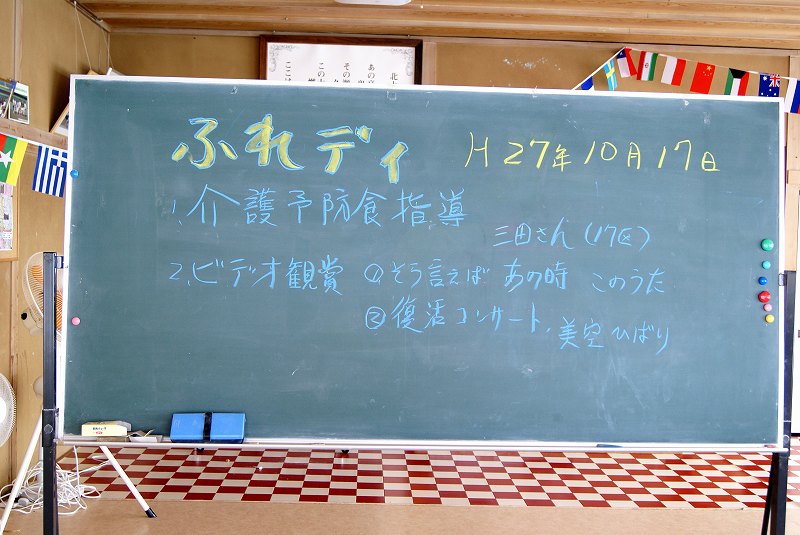 ふれディ H27年10月17日
1.介護予防食指導
三田さん(17区)
2.ビデオ観賞 ①そう言えば あの時 このうた
②復活コンサート、美空ひばり